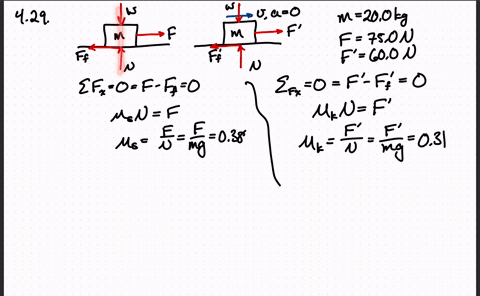 4.29.
W
m
F
F_f
N
W
v, a=0
m
F'
F_f'
N
m = 20.0 kg
F = 75.0 N
F' = 60.0 N
ΣF_x = 0 = F - F_f = 0
μ_s N = F
μ_s = F/N = F/mg = 0.38
Σ_Fx = 0 = F' - F_f' = 0
μ_k N = F'
μ_k = F'/N = F'/mg = 0.31